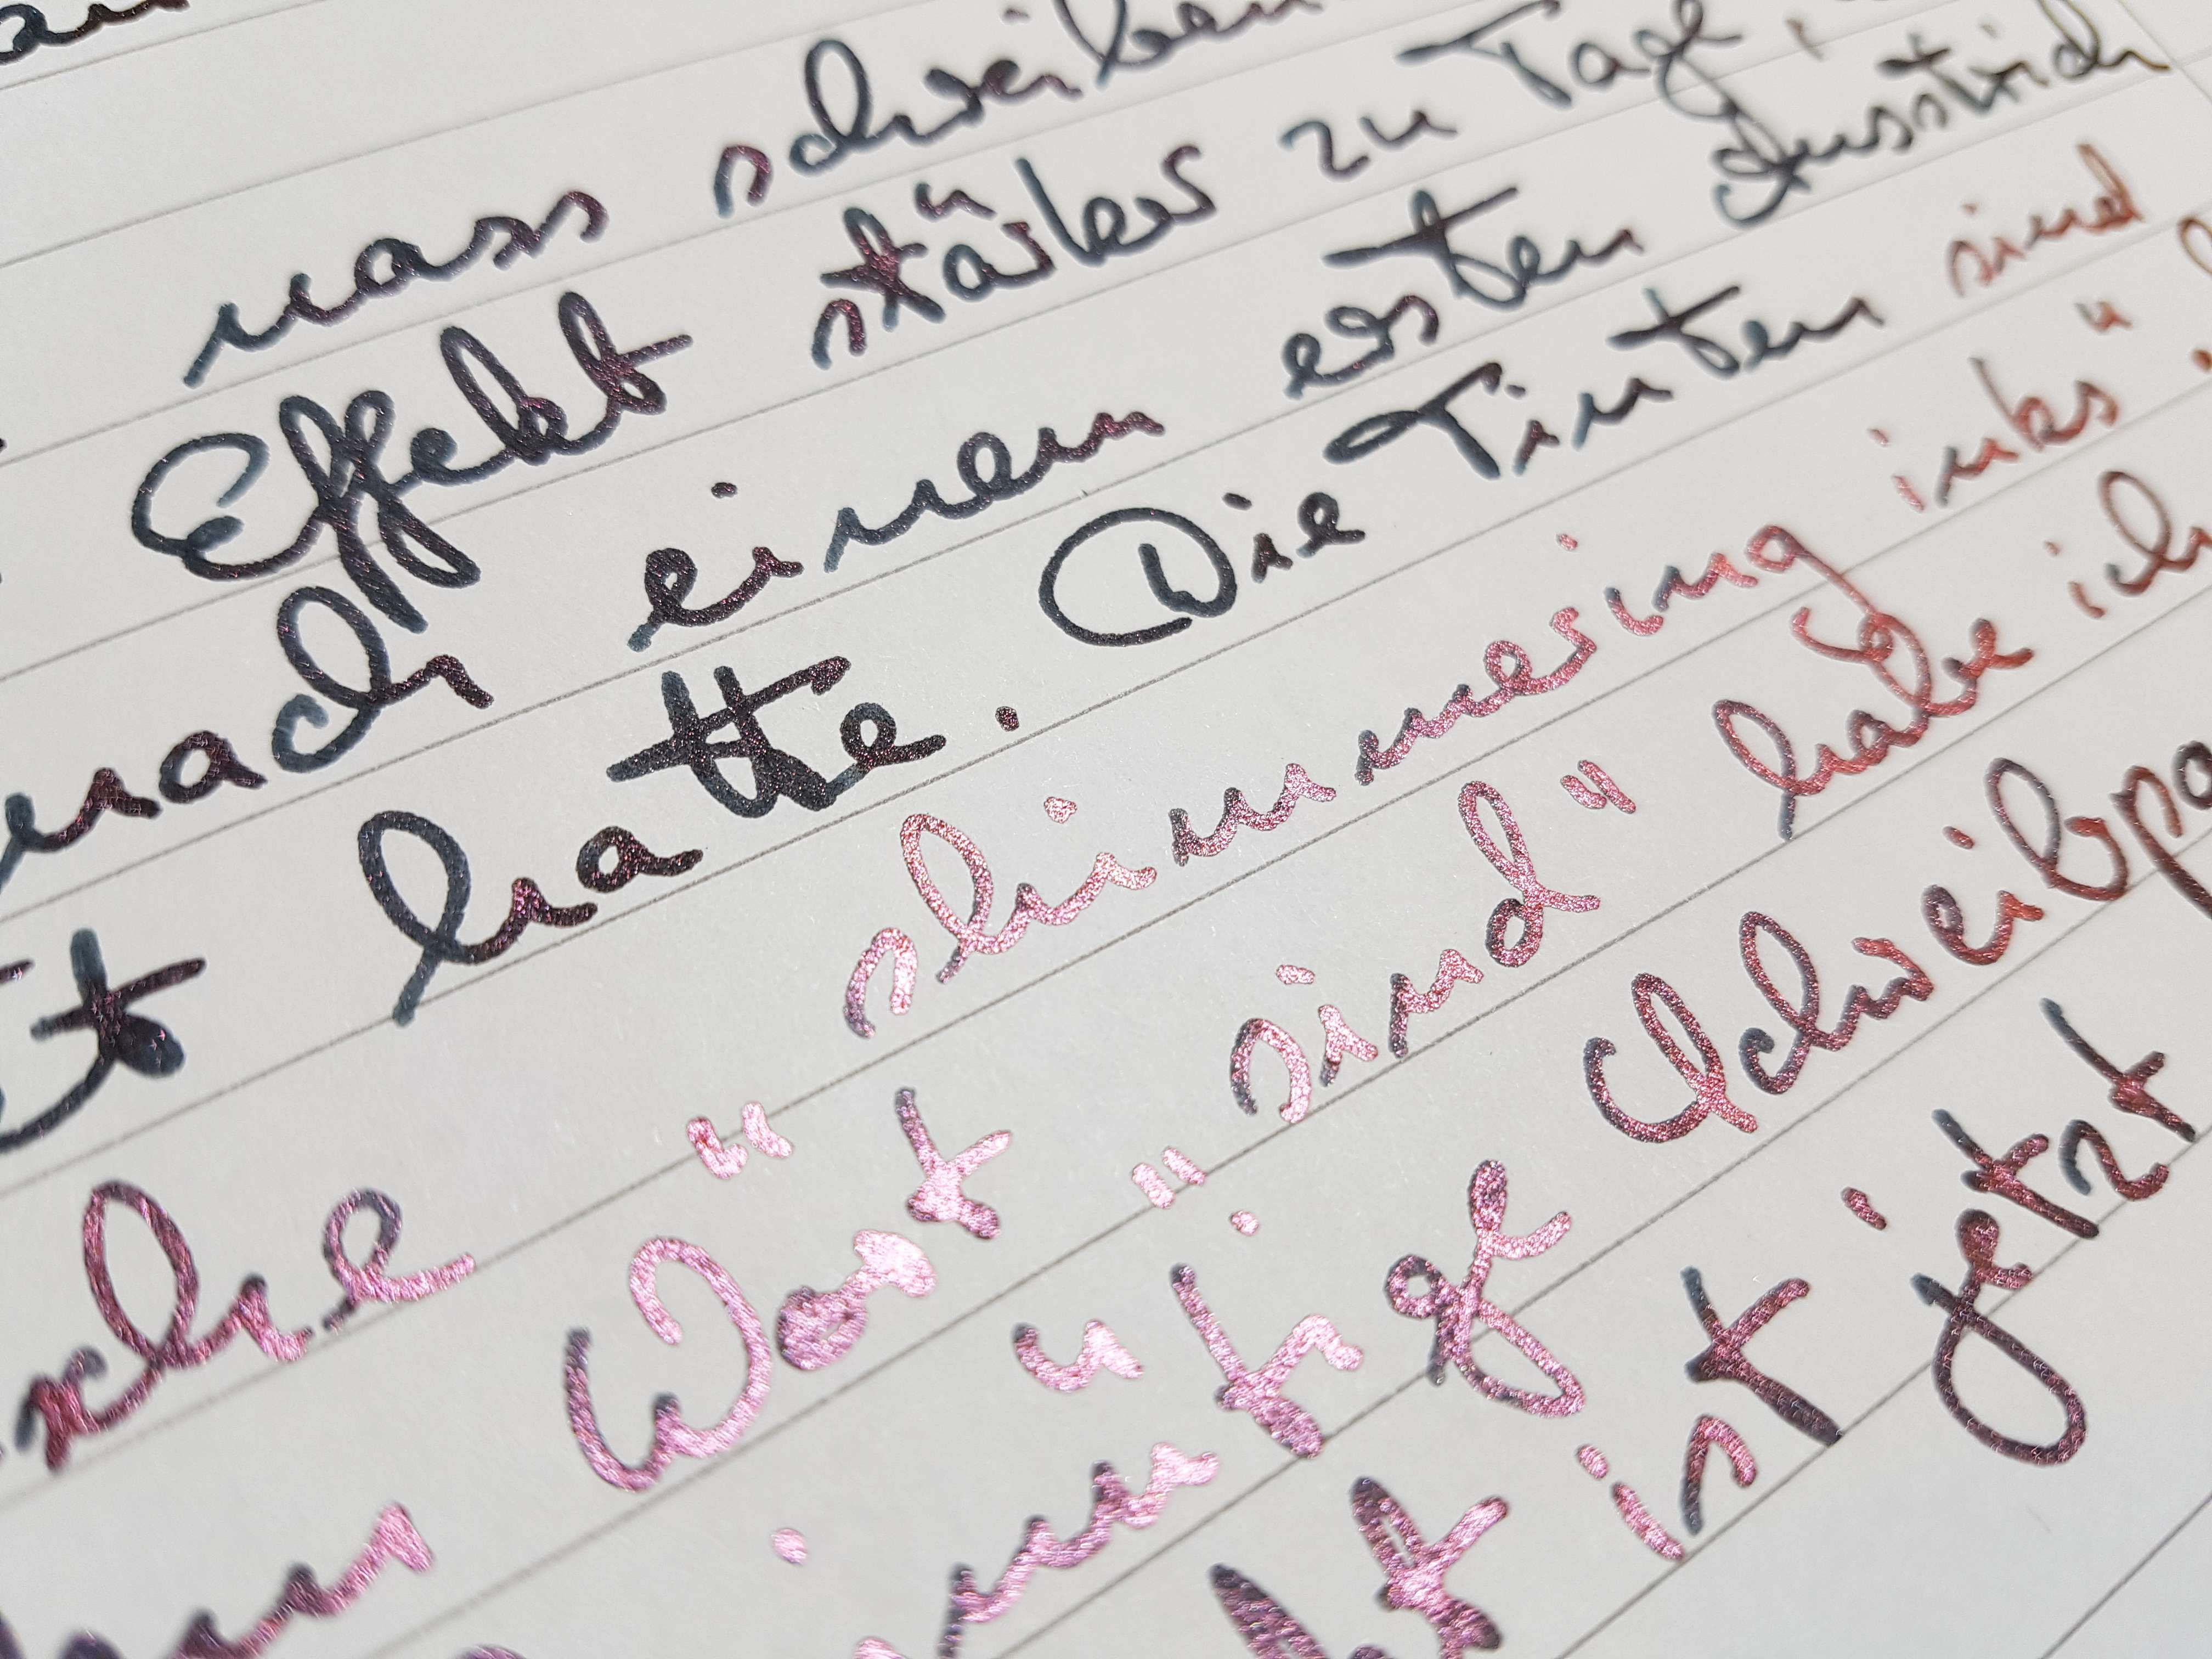 nass schreiben
Effekt stärker zu Tage
nach einem ersten Ausstrich
hatte. Die Tinten sind
"shimmering inks"
Wort "sind" habe ich
ist jetzt